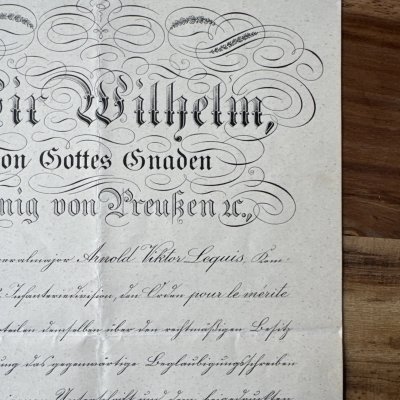 ir Wilhelm,
on Gottes Gnaden
nig von Preußen ꝛc.,
neralmajor Arnold Viktor Lequis, Kom⸗
Infanteriedivision, den Orden pour le mérite
rteilen demselben über den rechtmäßigen Besitz
ung das gegenwärtige Beglaubigungsschreiben
Unterschrift und dem beigedruckten